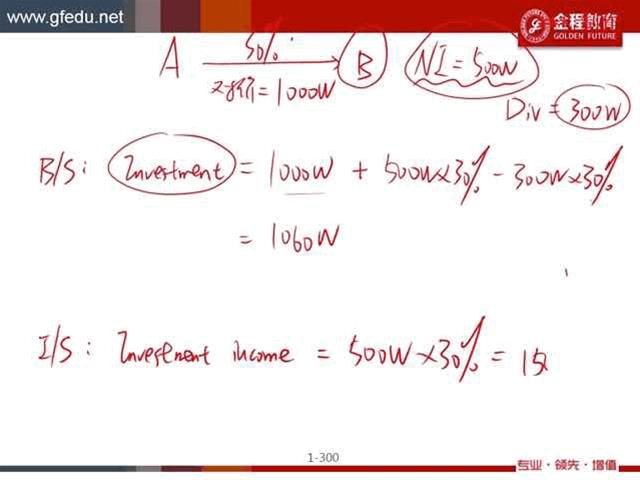 www.gfedu.net
金程教育
GOLDEN FUTURE
A 30% B NI = 500W
对价 = 1000W
Div = 300W
B/S: Investment = 1000W + 500W×30% - 300W×30%
= 1060W
I/S: Investment income = 500W×30% = 15
1-300
专业·领先·增值